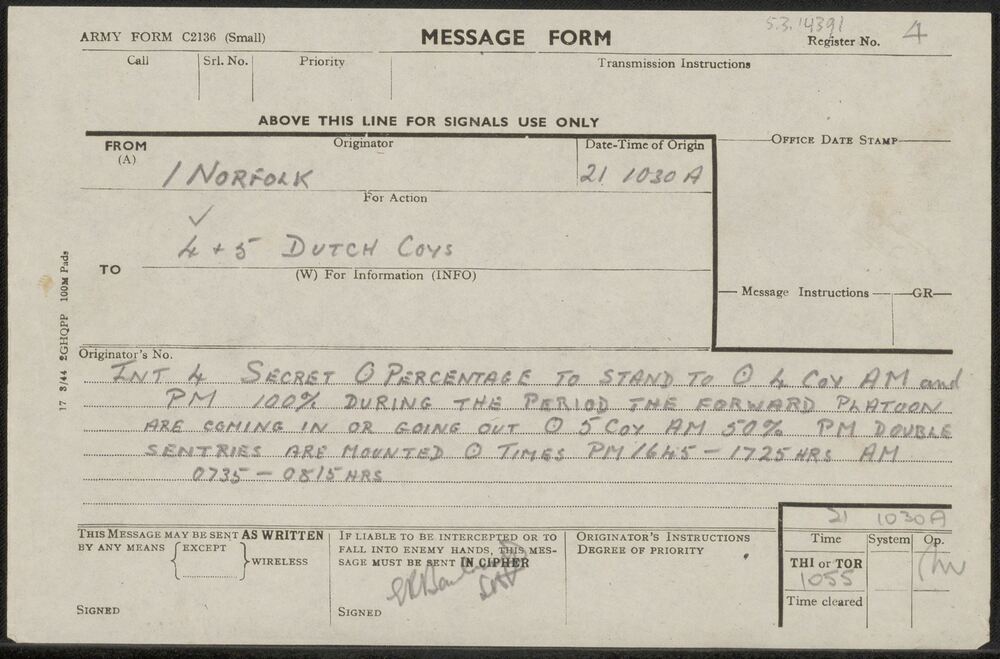 5.3.14391
ARMY FORM C2136 (Small)
MESSAGE FORM
Register No. 4
Call
Srl. No.
Priority
Transmission Instructions
ABOVE THIS LINE FOR SIGNALS USE ONLY
FROM
(A)
Originator
Date-Time of Origin
OFFICE DATE STAMP
1 NORFOLK
21 1030 A
For Action
4 + 5 DUTCH COYS
TO
(W) For Information (INFO)
Message Instructions
GR
17 3/44 2GHQPP 100M Pads
Originator's No.
INT 4 SECRET O PERCENTAGE TO STAND TO O 4 COY AM and
PM 100% DURING THE PERIOD THE FORWARD PLATOON
ARE COMING IN OR GOING OUT O 5 COY AM 50% PM DOUBLE
SENTRIES ARE MOUNTED O TIMES PM 1645 - 1725 HRS AM
0735 - 0815 HRS
21 1030 A
THIS MESSAGE MAY BE SENT AS WRITTEN
BY ANY MEANS
EXCEPT
WIRELESS
SIGNED
IF LIABLE TO BE INTERCEPTED OR TO
FALL INTO ENEMY HANDS, THIS MES-
SAGE MUST BE SENT IN CIPHER
SIGNED
ORIGINATOR'S INSTRUCTIONS
DEGREE OF PRIORITY
Time
System
Op.
THI or TOR
1055
Time cleared